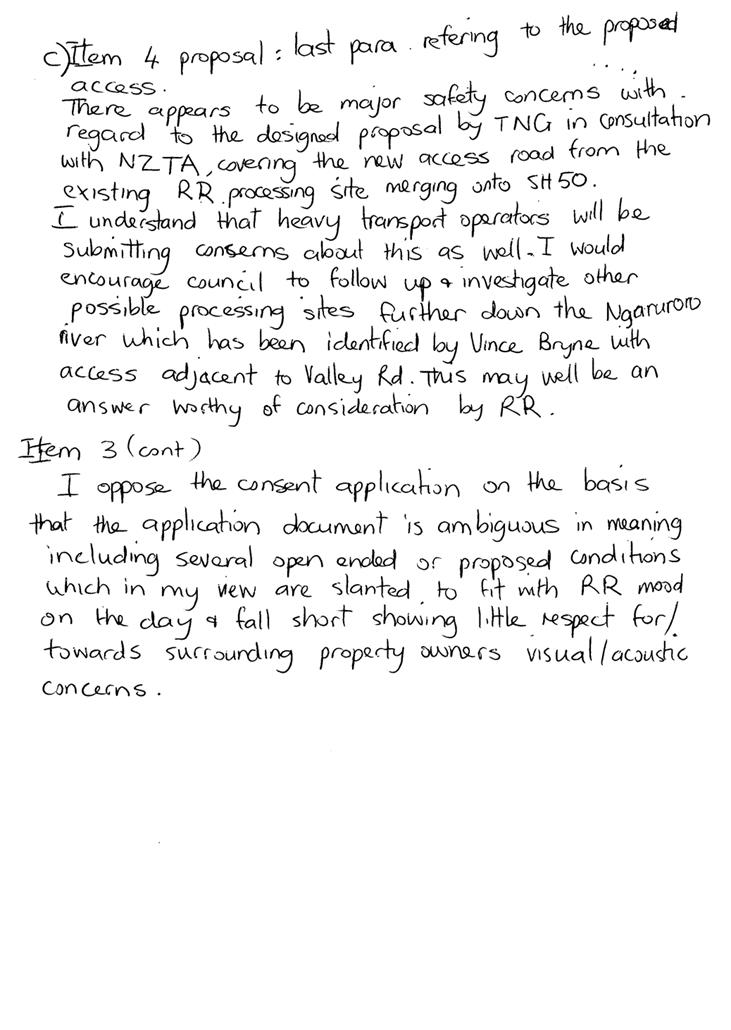 c) Item 4 proposal : last para. refering to the proposed
....
access.
There appears to be major safety concerns with.
regard to the designed proposal by TNG in consultation
with NZTA, covering the new access road from the
existing RR processing site merging onto SH50.
I understand that heavy transport operators will be
submitting conserns about this as well. I would
encourage council to follow up & investigate other
possible processing sites further down the Ngaruroro
river which has been identified by Vince Bryne with
access adjacent to Valley Rd. This may well be an
answer worthy of consideration by RR.
Item 3 (cont)
I oppose the consent application on the basis
that the application document is ambiguous in meaning
including several open ended or proposed conditions
which in my view are slanted to fit with RR mood
on the day & fall short showing little respect for/
towards surrounding property owners visual/acoustic
concerns.